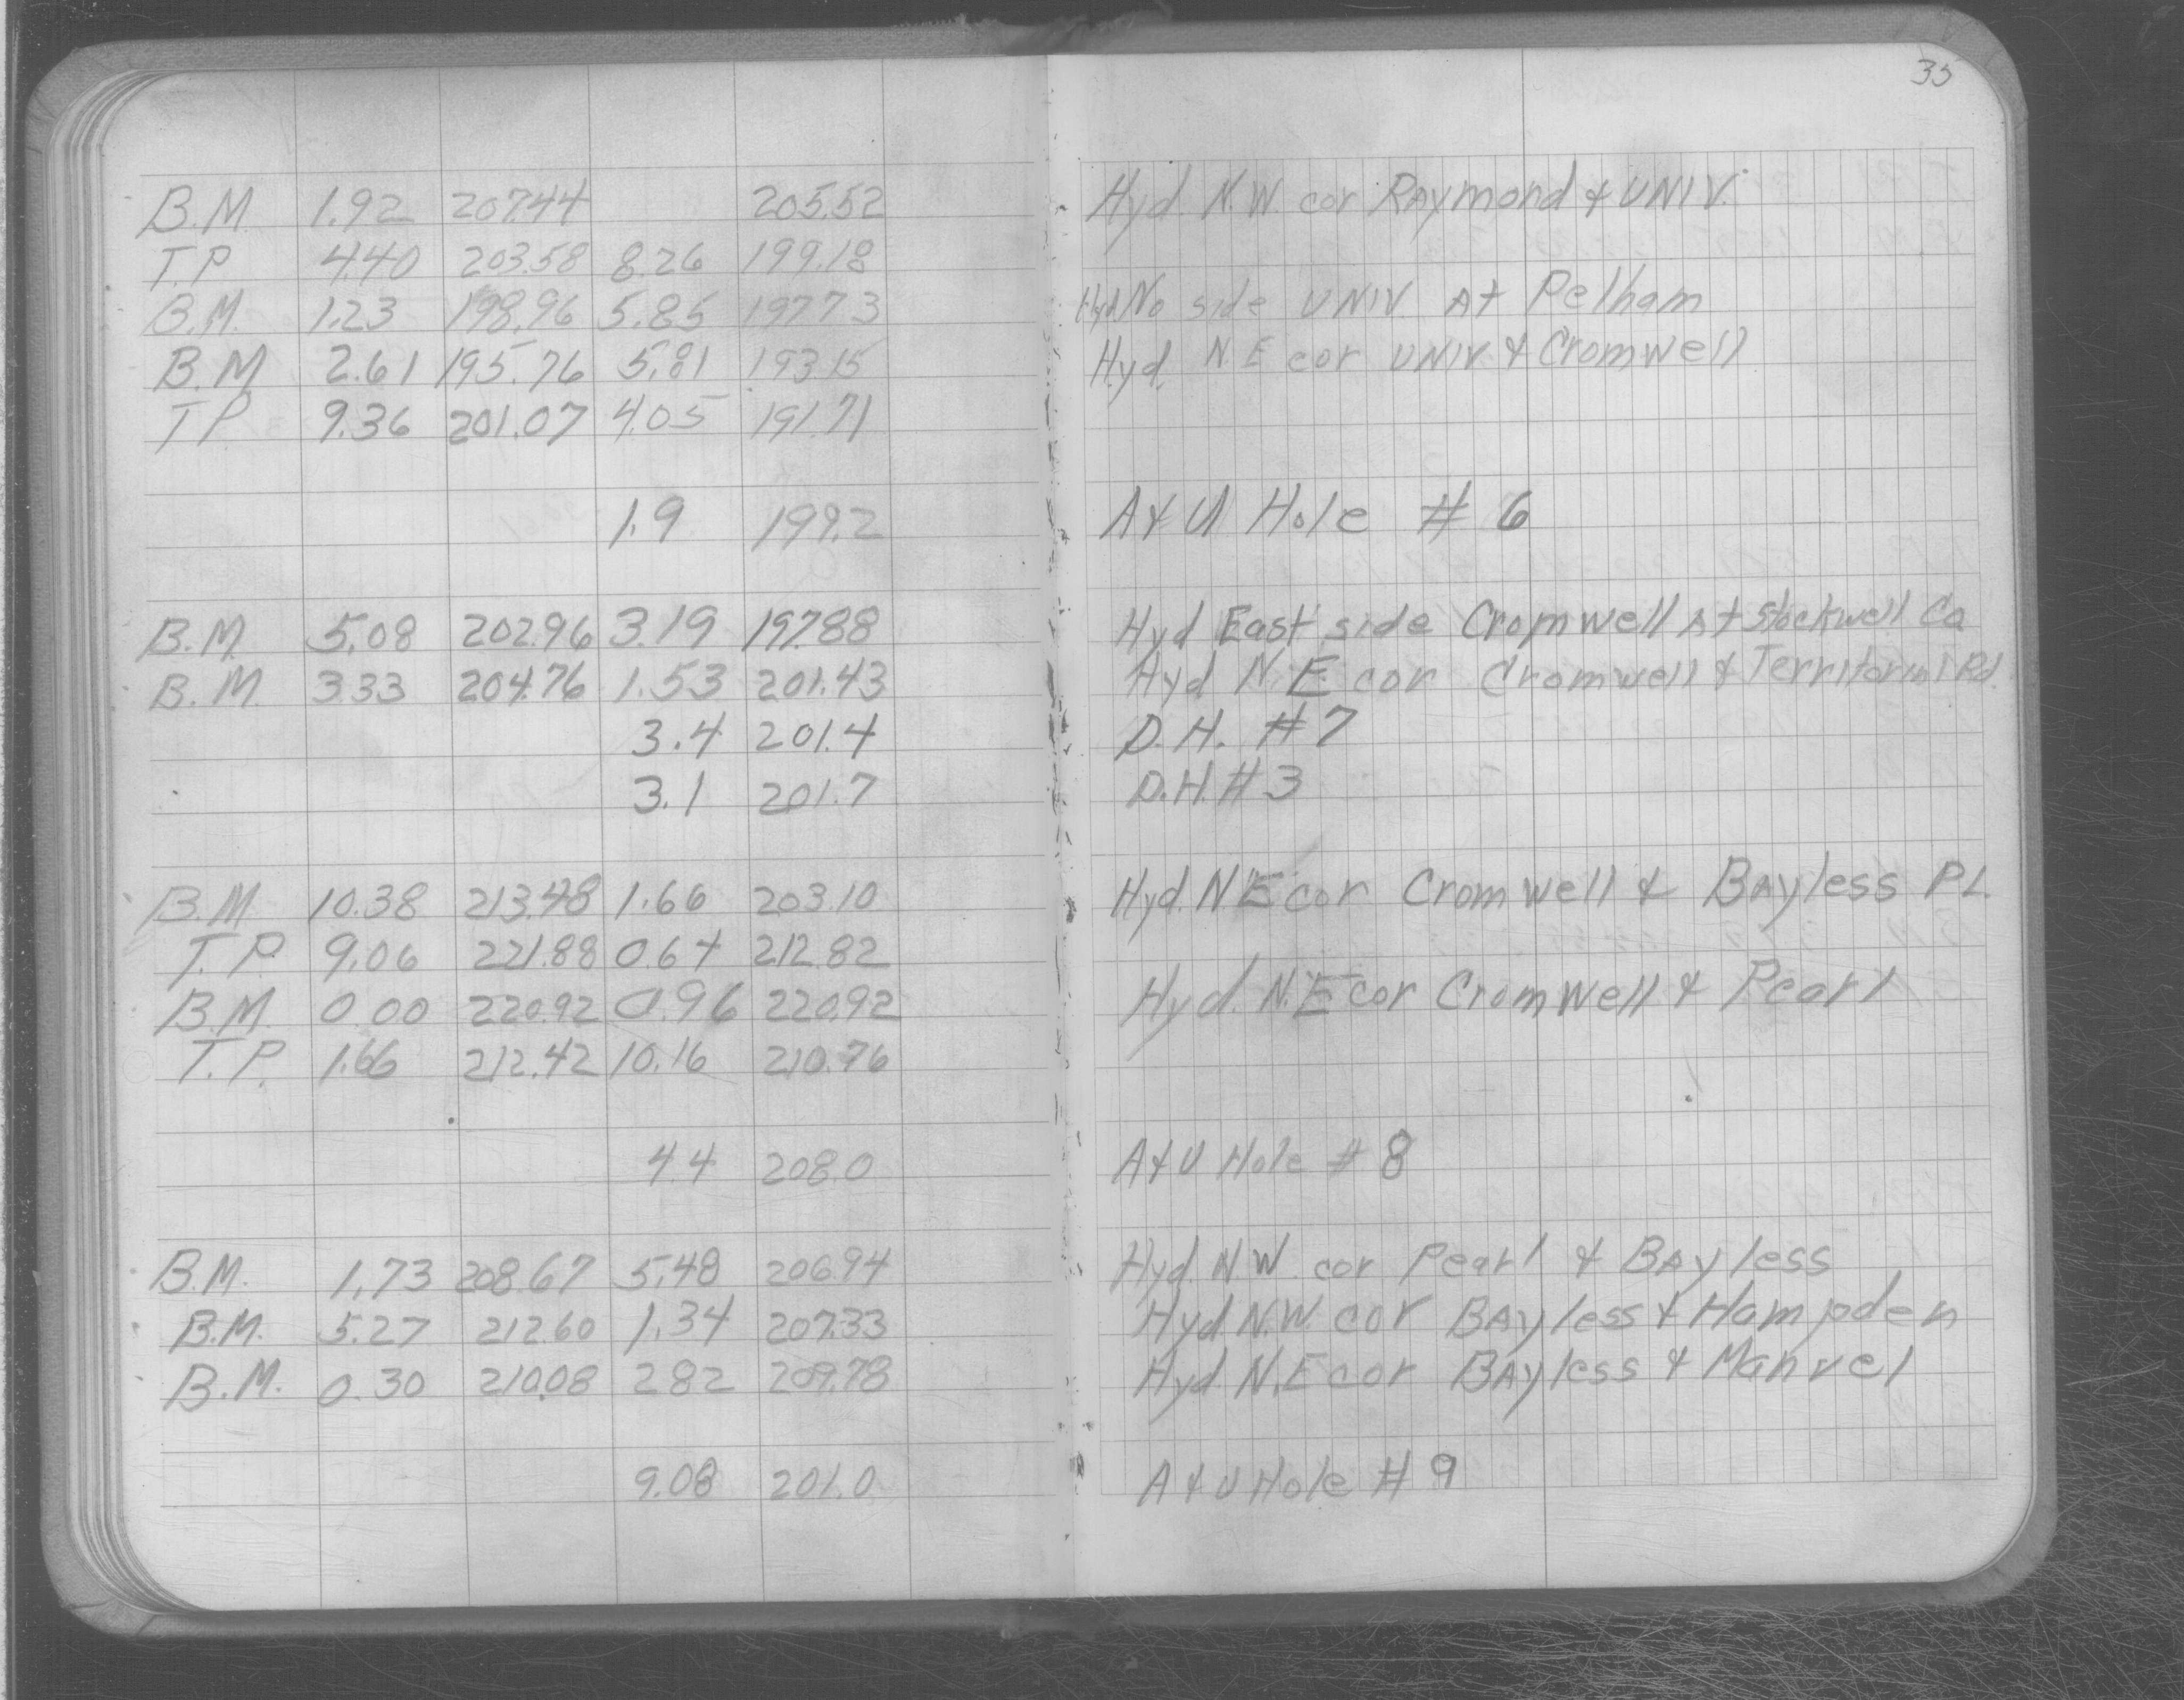 35
B.M. 1.92 207.44 205.52 Hyd. N.W. cor Raymond & UNIV.
T.P. 4.40 203.58 8.26 199.18
B.M. 1.23 198.96 5.85 197.73 Hyd No side UNIV. At Pelham
B.M 2.61 195.76 5.81 193.15 Hyd. N.E cor UNIV & Cromwell
T.P. 9.36 201.07 4.05 191.71
1.9 199.2 A & U Hole # 6
B.M. 5.08 202.96 3.19 197.88 Hyd East side Cromwell At Stockwell Co
B.M. 3.33 204.76 1.53 201.43 Hyd N.E. cor Cromwell & Territorial Rd.
3.4 201.4 D.H. #7
3.1 201.7 D.H. #3
B.M 10.38 213.48 1.66 203.10 Hyd. N E cor Cromwell & Bayless PL.
T.P. 9.06 221.88 0.67 212.82
B.M. 0.00 220.92 0.96 220.92 Hyd. N.E cor Cromwell & Pearl
T.P. 1.66 212.42 10.16 210.76
4.4 208.0 A & U Hole # 8
B.M. 1.73 208.67 5.48 206.94 Hyd. N.W. cor Pearl & Bayless
B.M. 5.27 212.60 1.34 207.33 Hyd. N.W. cor Bayless & Hampden
B.M. 0.30 210.08 2.82 209.78 Hyd. N.E cor Bayless & Manvel
9.08 201.0 A & U Hole # 9